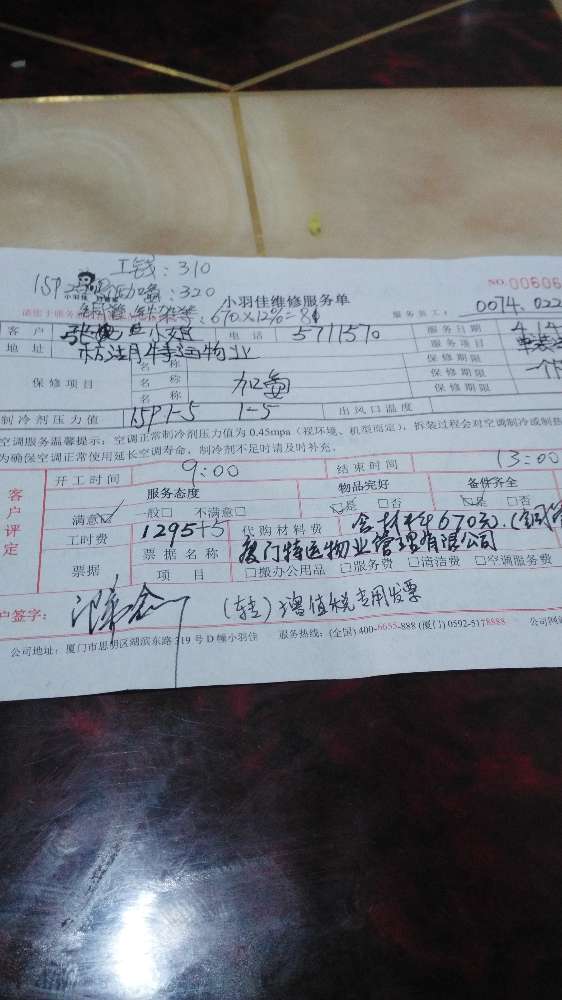 工钱：310
15P 加氟：320
小羽佳维修服务单
NO.00606
670×12%=81
服务员工： 0074.022
客户 小姐 电话 5711570 服务日期 4.14
地址 特运物业 服务项目
名称 保修期限
保修项目 名称 加氟 保修期限 一个
名称 保修期限
制冷剂压力值 15P 1-5 1-5 出风口温度
空调服务温馨提示：空调正常制冷剂压力值为 0.45mpa（视环境、机型而定），拆装过程会对空调制冷或制热
为确保空调正常使用延长空调寿命，制冷剂不足时请及时补充。
开工时间 9:00 结束时间 13:00
客户评定 服务态度 物品完好 备件齐全
满意☑ 一般□ 不满意□ ☑是 □否 ☑是 □否
工时费 1295+5 代购材料费 含材料670元.(铜管
票据 票据名称 厦门特运物业管理有限公司
项目 □搬办公用品 □服务费 □清洁费 □空调服务费
户签字：
(转)增值税专用发票
公司地址：厦门市思明区湖滨东路319号D幢小羽佳 服务热线：(全国) 400-6655-888 (厦门) 0592-5178888 公司网